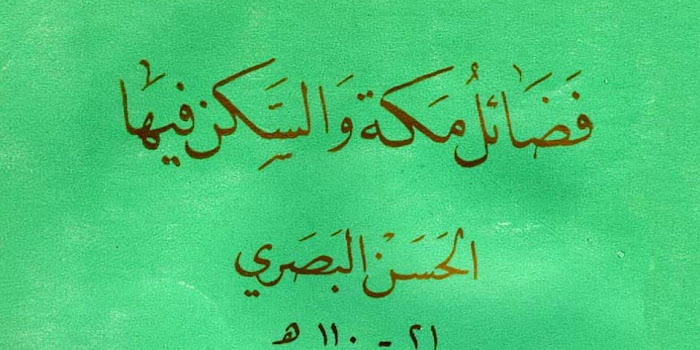 فَضَائلُ مَكة وَالسَّكن فيهَا
الحَسَن البَصَري
٢١ - ١١٠ هـ